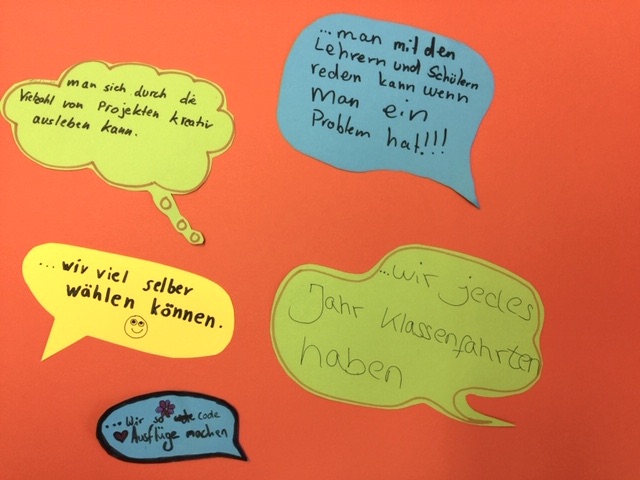 ...man sich durch die
Vielzahl von Projekten kreativ
ausleben kann.
...man mit den
Lehrern und Schülern
reden kann wenn
man ein
Problem hat!!!
...wir viel selber
wählen können.
...wir jedes
Jahr Klassenfahrten
haben
...Wir so coole
Ausflüge machen